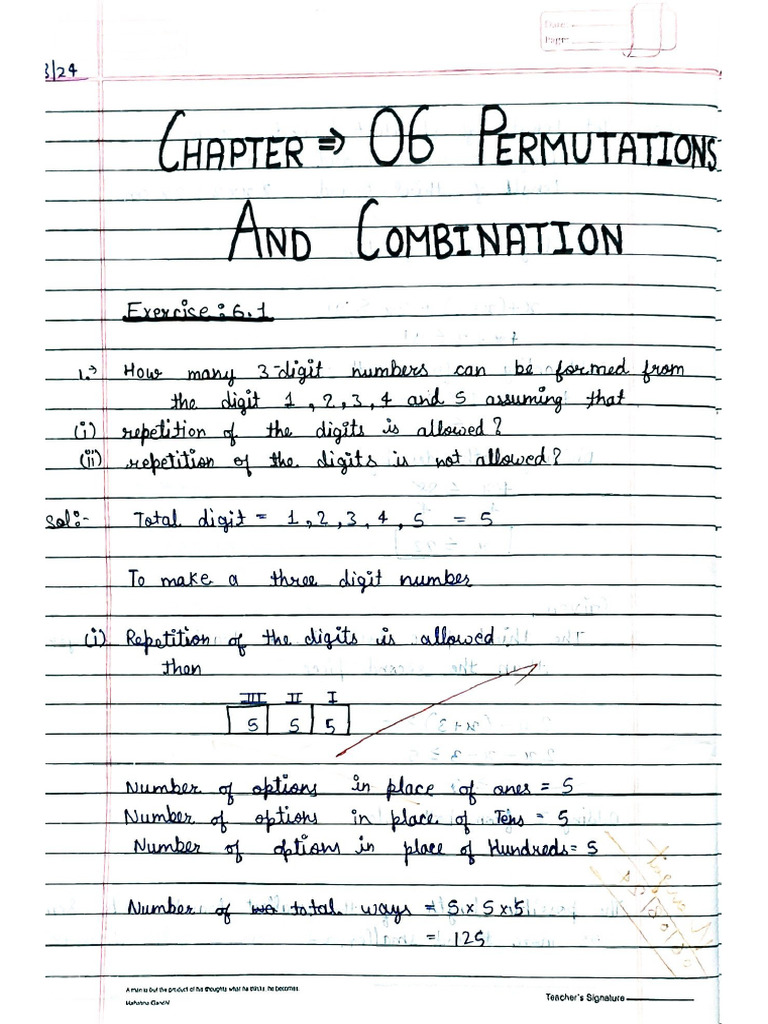 Date:
Page:
3/24
CHAPTER ⇒ 06 PERMUTATIONS
AND COMBINATION
Exercise: 6.1
1.→ How many 3-digit numbers can be formed from
the digit 1, 2, 3, 4 and 5 assuming that
(i) repetition of the digits is allowed?
(ii) repetition of the digits is not allowed?
Sol:- Total digit = 1, 2, 3, 4, 5 = 5
To make a three digit number
(i) Repetition of the digits is allowed.
then
III II I
5 5 5
Number of options in place of ones = 5
Number of options in place of Tens = 5
Number of options in place of Hundreds = 5
Number of total ways = 5 × 5 × 5
= 125
A man is but the product of his thoughts what he thinks, he becomes.
Mahatma Gandhi
Teacher's Signature